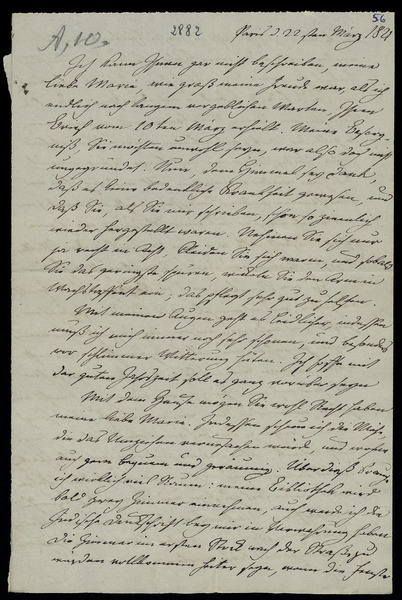 56
A, 10.
2882
Paris d 22sten März 1821
Ich kann Ihnen gar nicht beschreiben, meine
liebe Marie, wie groß meine Freude war, als ich
endlich nach langem vergeblichen Warten, Ihren
Brief vom 10ten März erhielt. Meine Besorg-
niß, Sie möchten unwohl seyn, war also doch nicht
ungegründet. Nun, dem Himmel sey Dank,
daß es keine bedenkliche Krankheit gewesen, und
daß Sie, als Sie mir schrieben, schon so ziemlich
wieder hergestellt waren. Nehmen Sie sich nur
ja recht in Acht, kleiden Sie sich warm, und sobald
Sie das geringste spüren, wickeln Sie den Armen
Wachstaffent ein; das pflegt sehr gut zu helfen.
Mit meinen Augen geht es leidlicher, indessen
muß ich mich immer noch sehr schonen, und besonders
vor schlimmer Witterung hüten. Ich hoffe mit
der guten Jahrszeit soll es ganz vorüber seyn
Mit dem Hause mögen Sie wohl Recht haben
meine liebe Marie. Indessen scheue ich die Mühe
die das Umziehen verursachen würde, und wohne
auch gern bequem und geräumig. Überdieß brauche
ich wirklich viel Raum: meine Bibliothek wird
bald zwey Zimmer einnehmen, auch werde ich die
Indische Druckschrift bey mir in Verwahrung haben
Die Zimmer im ersten Stock nach der Straße zu
würden vollkommen heiter seyn, wenn die Fenster